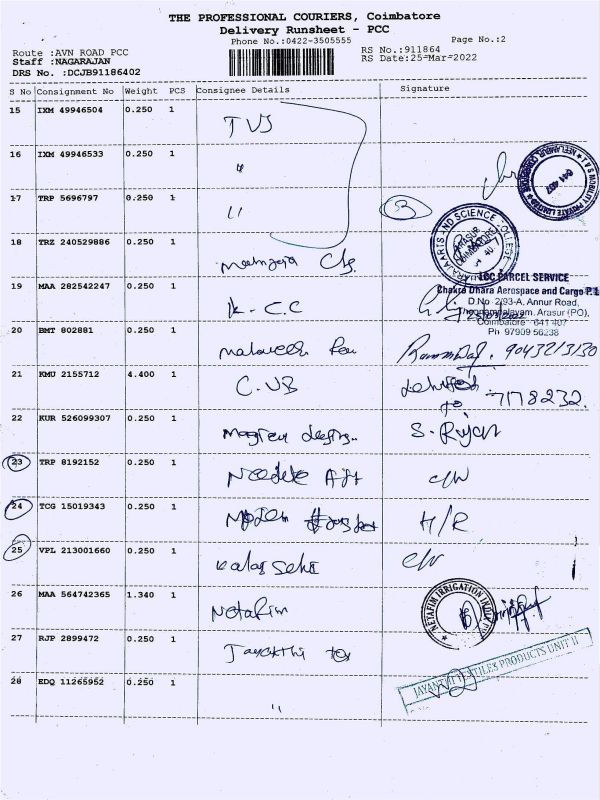 THE PROFESSIONAL COURIERS, Coimbatore
Delivery Runsheet - PCC
Phone No.:0422-3505555 Page No.:2
Route :AVN ROAD PCC RS No.:911864
Staff :NAGARAJAN RS Date:25-Mar-2022
DRS No. :DCJB91186402
S No Consignment No Weight PCS Consignee Details Signature
15 IXM 49946504 0.250 1 TVS
16 IXM 49946533 0.250 1 "
17 TRP 5696797 0.250 1 " 3
18 TRZ 240529886 0.250 1
ARTS AND SCIENCE COLLEGE
ARASUR
COIMBATORE
LCC PARCEL SERVICE
19 MAA 282542247 0.250 1 K.C.C
Chakra Dhara Aerospace and Cargo P.L
D.No. 2/93-A, Annur Road,
Arasur (PO),
Coimbatore - 641 407
Ph 97909 56238
20 BMT 802881 0.250 1 9043213130
21 KMU 2155712 4.400 1 C.UB 7178232.
22 KUR 526099307 0.250 1 S. Rijan
23 TRP 8192152 0.250 1 c/w
24 TCG 15019343 0.250 1 H/R
25 VPL 213001660 0.250 1 c/w
26 MAA 564742365 1.340 1 Netafim
NETAFIM IRRIGATION INDIA
27 RJP 2899472 0.250 1
JAYANTHI TEXTILES PRODUCTS UNIT II
28 EDQ 11265952 0.250 1 "